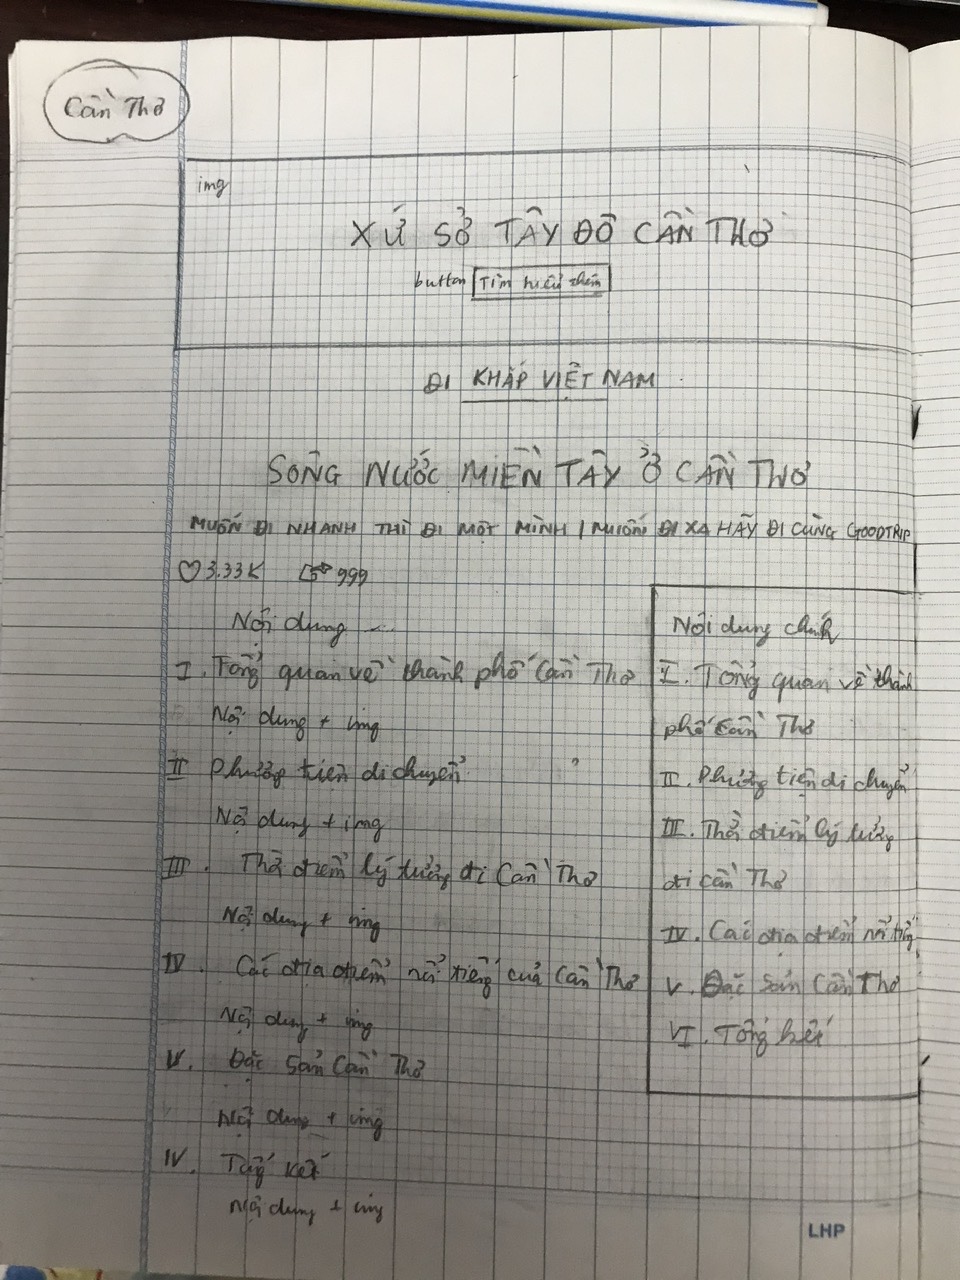 Cần Thơ
img
XỨ SỞ TÂY ĐÔ CẦN THƠ
button Tìm hiểu thêm
ĐI KHẮP VIỆT NAM
SÔNG NƯỚC MIỀN TÂY Ở CẦN THƠ
MUỐN ĐI NHANH THÌ ĐI MỘT MÌNH / MUỐN ĐI XA HÃY ĐI CÙNG GOODTRIP
3.33K 999
Nội dung ...
I. Tổng quan về thành phố Cần Thơ
Nội dung + img
II Phương tiện di chuyển
Nội dung + img
III. Thời điểm lý tưởng đi Cần Thơ
Nội dung + img
IV. Các địa điểm nổi tiếng của Cần Thơ
Nội dung + img
V. Đặc sản Cần Thơ
Nội dung + img
IV. Tổng kết
Nội dung + img
Nội dung chính
I. Tổng quan về thành
phố Cần Thơ
II. Phương tiện di chuyển
III. Thời điểm lý tưởng
đi Cần Thơ
IV. Các địa điểm nổi tiếng
V. Đặc sản Cần Thơ
VI. Tổng kết
LHP